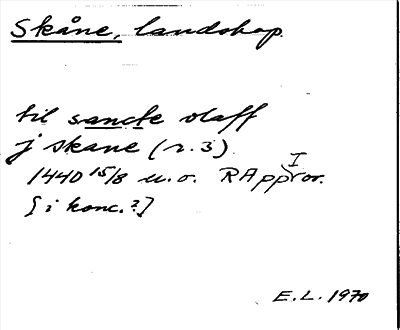 Skåne, landskap.
til sancte olaff
j skane (r. 3)
1440 15/8 u. o. RApp I or.
[i konc.?]
E. L. 1970